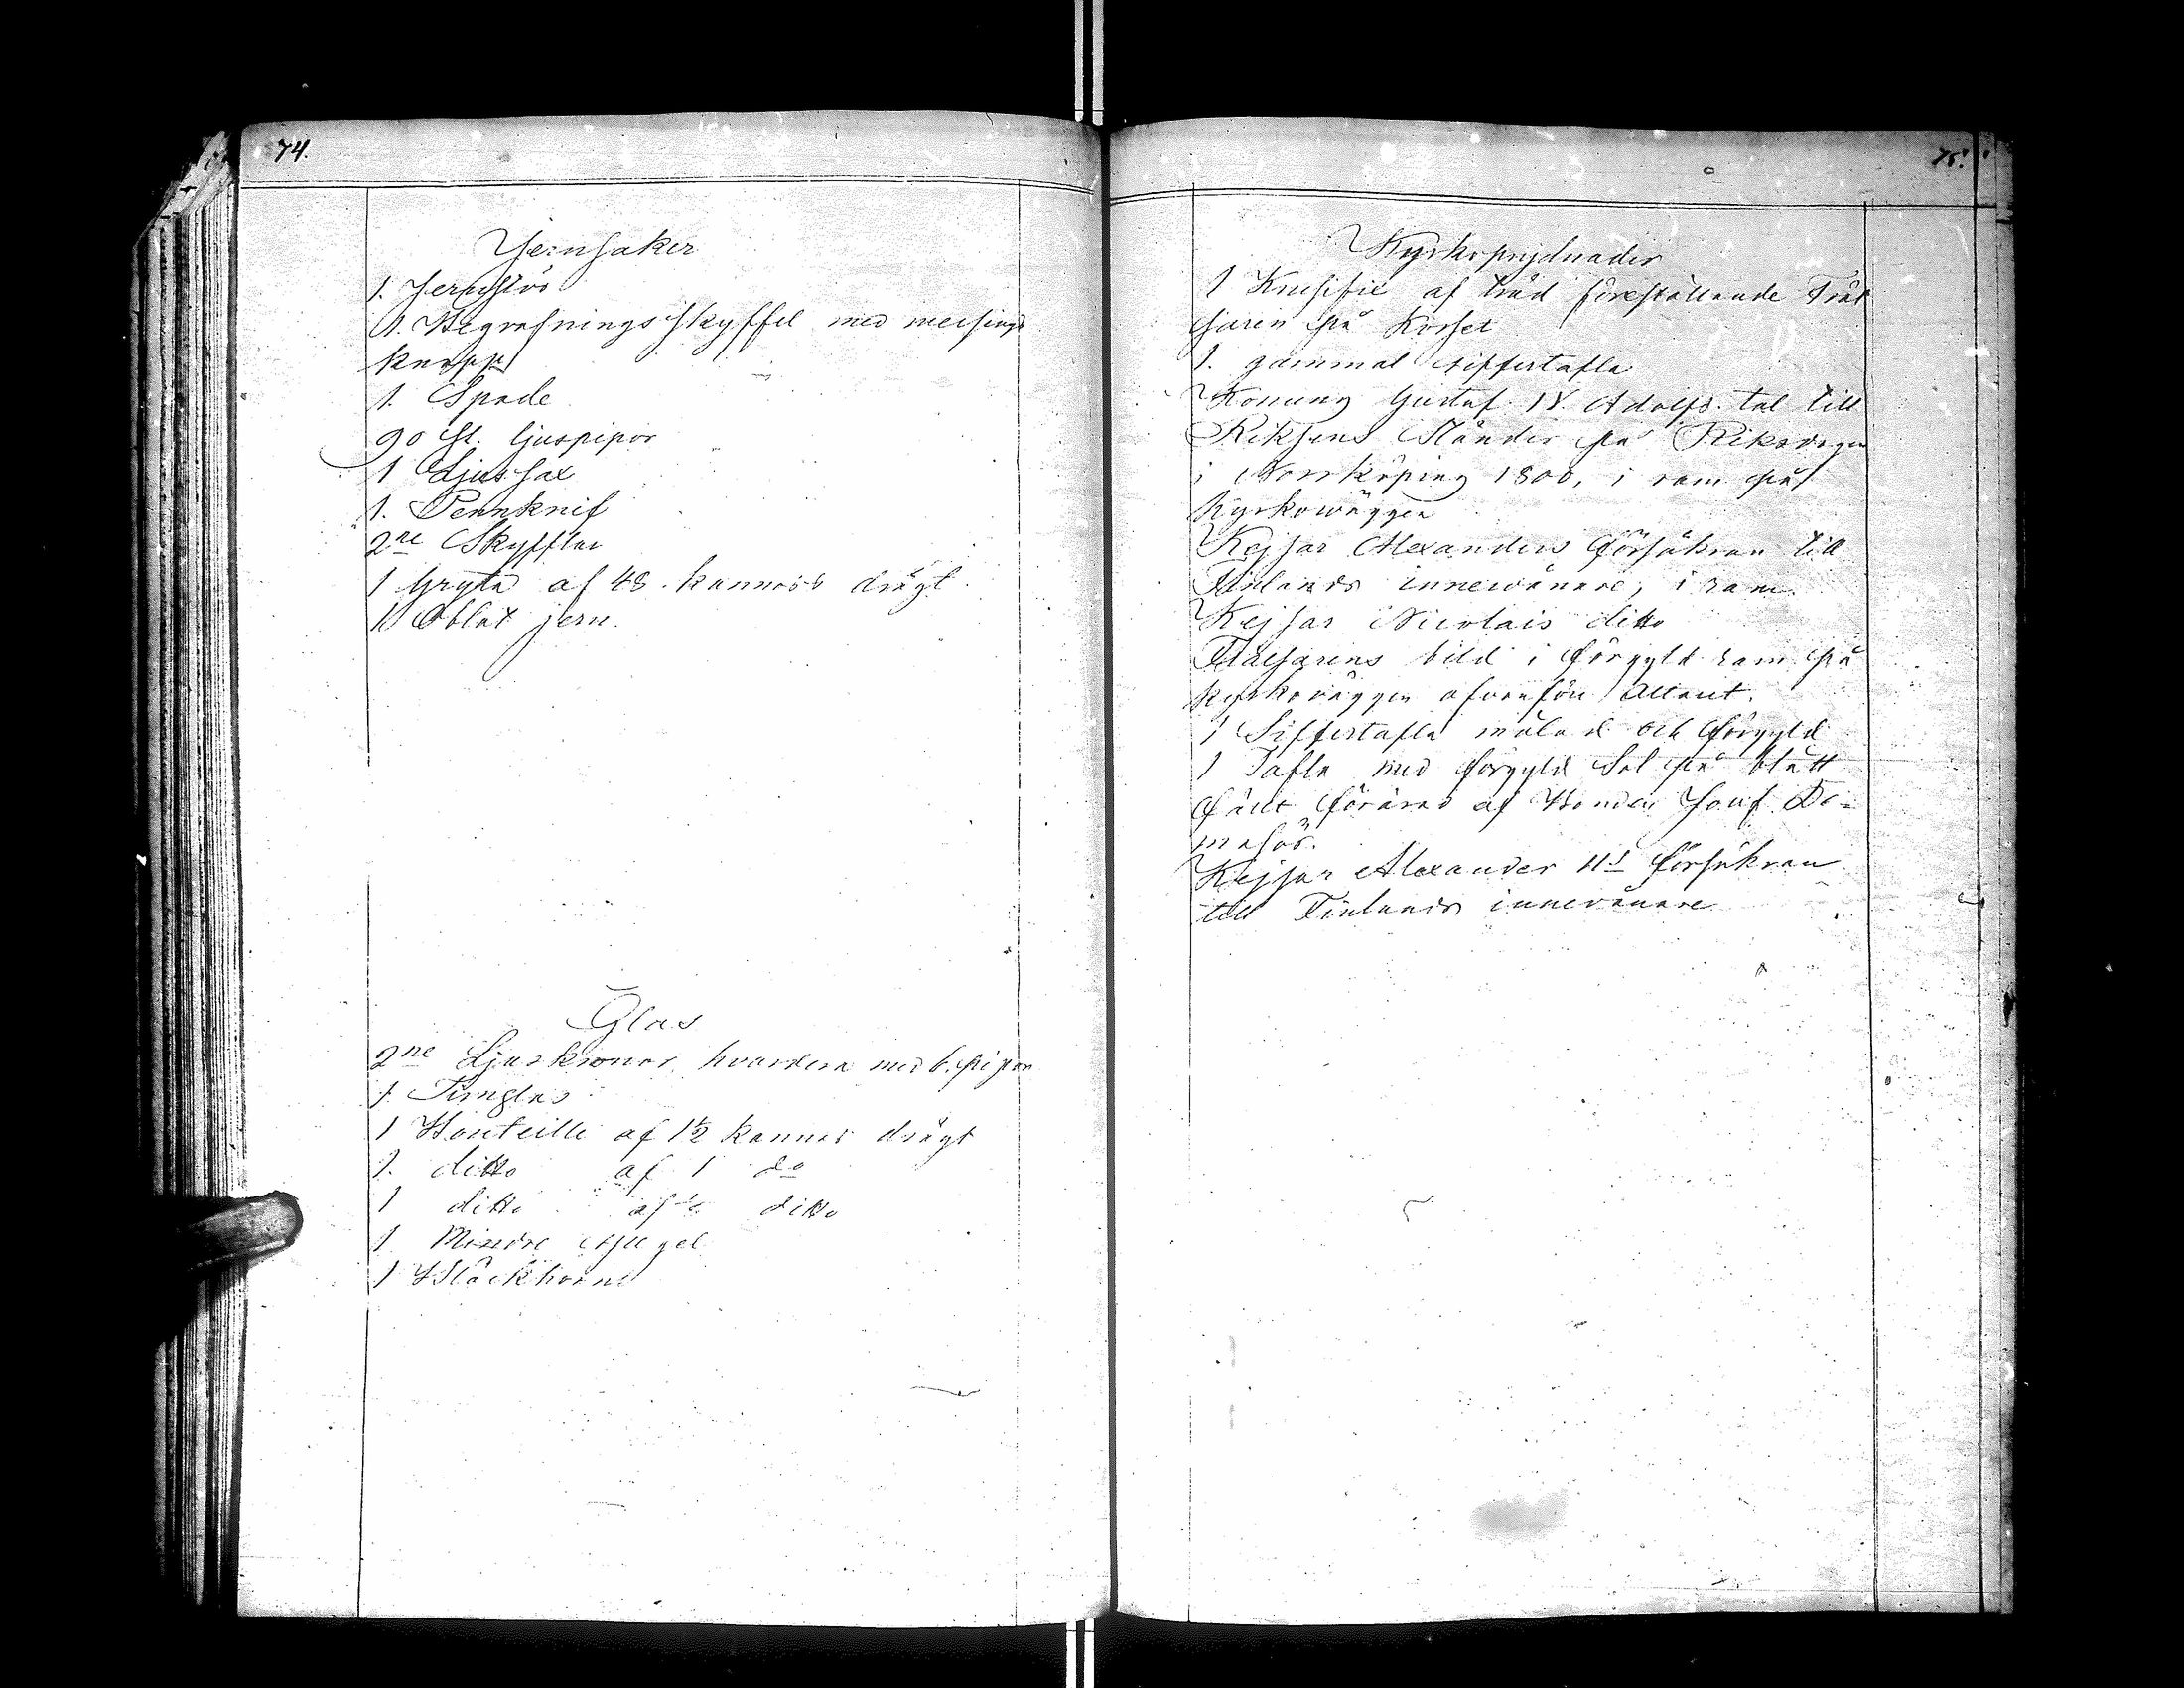 74.
Jernsaker
1. Jernstör
1. Begrafnings skyffel med messings
knapp
1. Spade
90 st. ljuspipor
1 Ljus sax
1. Pennknif
2ne Skyfflar
1 Gryta af 48. kannors drägt
1 Oblat jern.
Glas
2ne Ljuskronor hvardera med 6. pipor
1 Timglas
1 Bouteille af 1½ kannas drägt
1. ditto af 1 do
1 ditto af ½ ditto
1 Mindre spegel
1 Bläckhorn
75.
Kyrkoprydnader
1 Krusifix af träd föreställande Fräl
saren på Korset
1. gammal siffertafla
Konung Gustaf IV. Adolfs. tal till
Riksens Ständer på Riksdagen
i Norrköping 1800, i ram på
Kyrkowäggen
Kejsar Alexanders försäkran till
Finlands innewånare, i ram.
Kejsar Nicolais ditto
Frälsarens bild i förgyld ram på
kyrkowäggen ofvanför Altaret.
1 Siffertafla målad och förgyld
1 Tafla med förgyld Sol på blått
fält förärad af Bonden Josef
Kejsar Alexander IIs försäkran
till Finlands innevånare